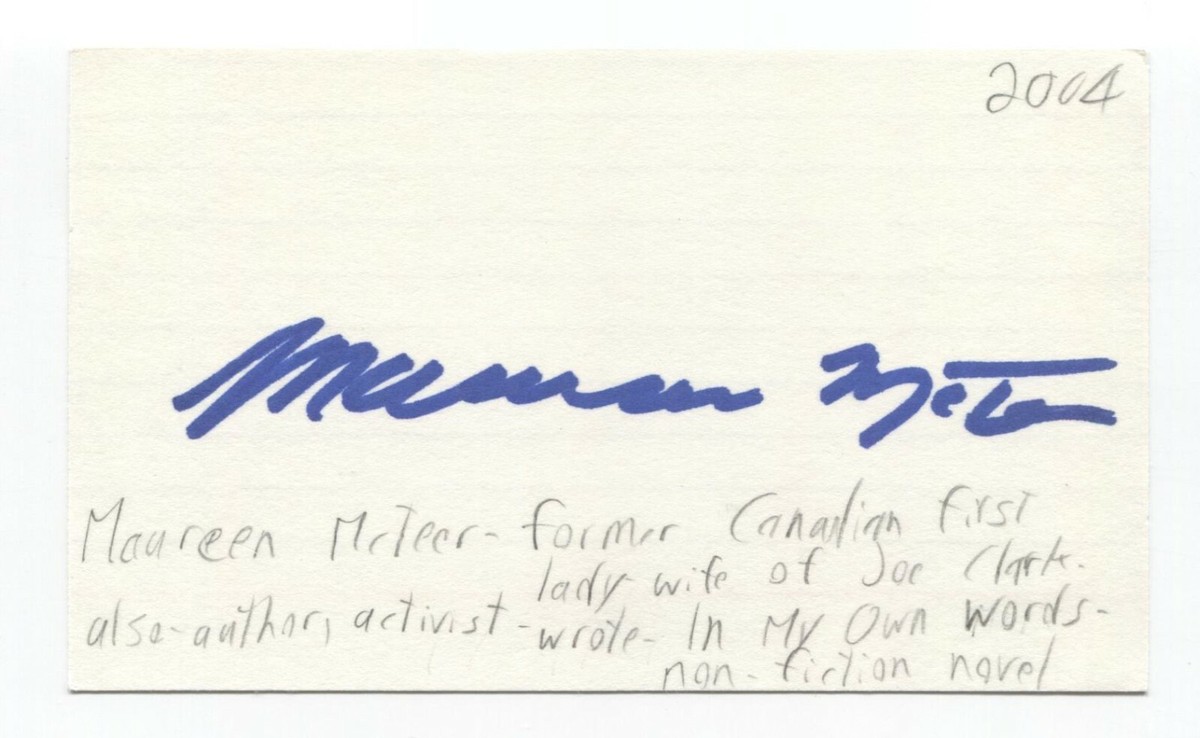 2004
Maureen McTeer
Maureen McTeer- former Canadian First
lady- wife of Joe Clark.
also-author, activist -wrote- In My Own Words-
non-fiction novel